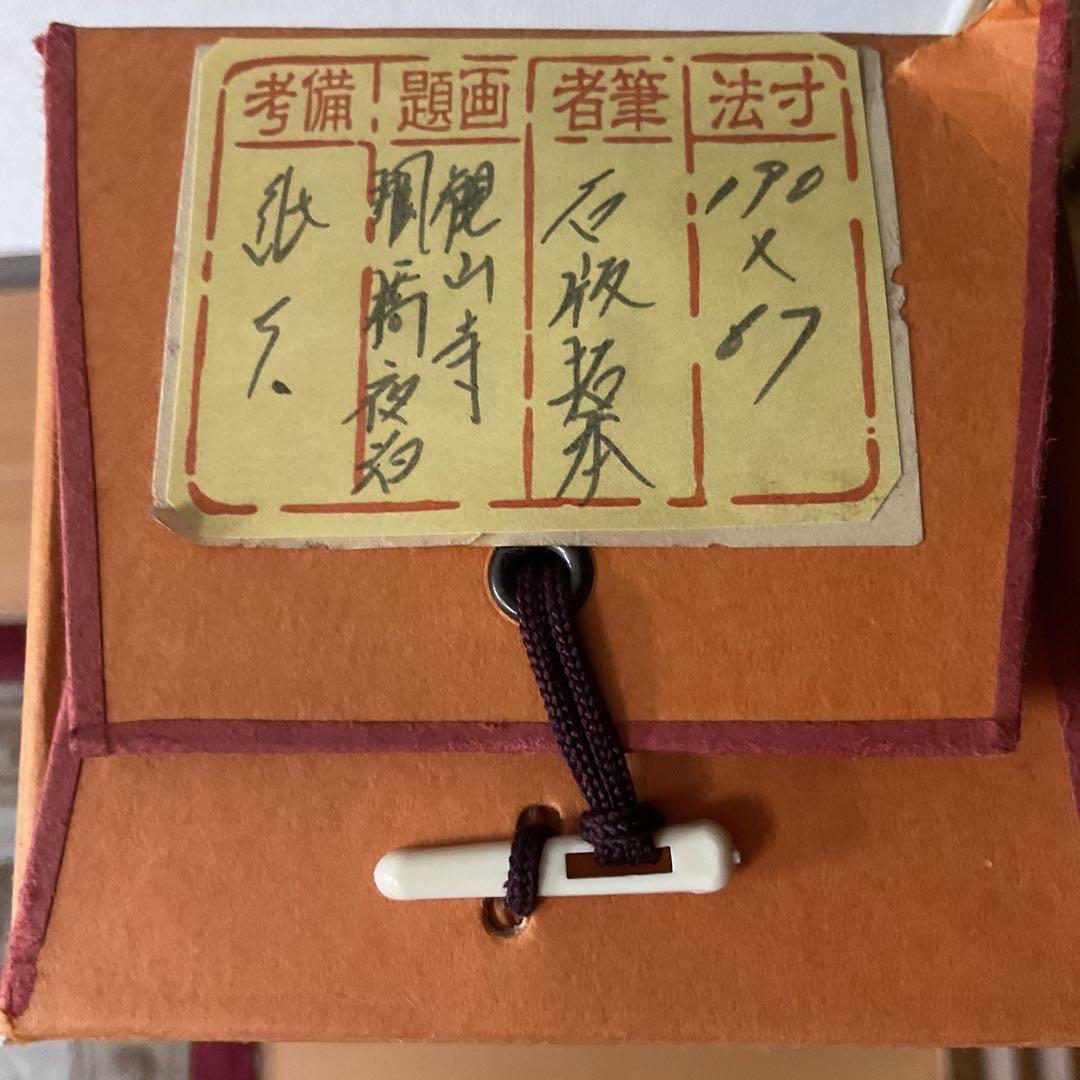 寸法
190
×
67
筆者
石版拓本
画題
観山寺
橋夜泊
備考
紙